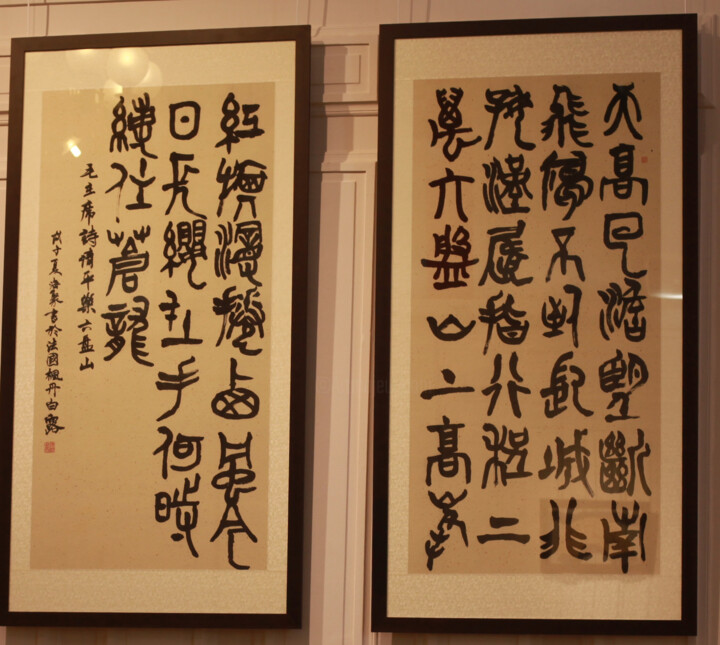 天高云澹望斷南
飛鴈不到長城非
好漢屈指行程二
萬六盤山上高峰
紅旗漫卷西風今
日長纓在手何時
縛住蒼龍
毛主席詩清平樂六盘山
戊子夏海書於法國楓丹白露